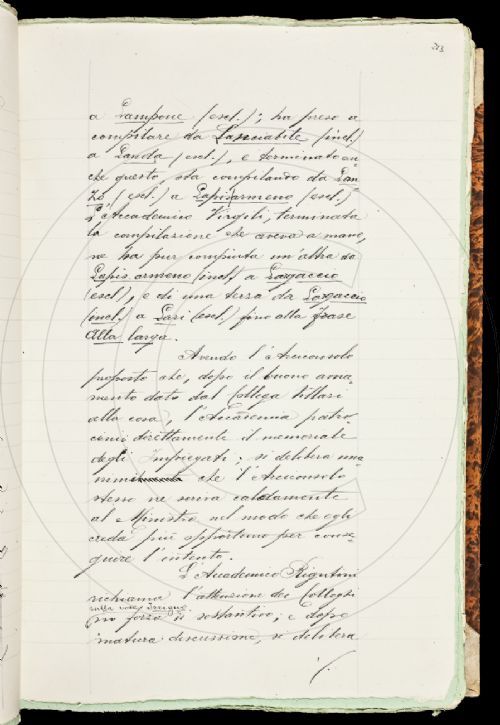 a Lampone (escl.); ha preso a
compilare da Lanciabile (incl.)
a Landa (escl.), e terminato an-
che questo, sta compilando da Lan-
zo (escl.) a Lapisarmeno (escl.)
L'Accademico Virgili, terminata
la compilazione che aveva a mano,
ne ha pur compiuta un'altra da
Lapis armeno (incl.) a Largaccio
(escl.), e di una terza da Largaccio
(incl.) a Lasi (escl.) fino alla frase
Alla larga.
Avendo l'Arciconsolo
proposto che, dopo il buono avvia-
mento dato dal Collega Villari
alla cosa, l'Accademia patro-
cini direttamente il memoriale
degli Impiegati; si delibera una-
nim che l'Arciconsolo
stesso ne scriva caldamente
al Ministro nel modo che egli
creda più opportuno per conse-
guire l'intento.
L'Accademico Rigutini
richiama l'attenzione dei Colleghi
sulla voce
forza di sostantivo; e dopo
matura discussione, si delibera